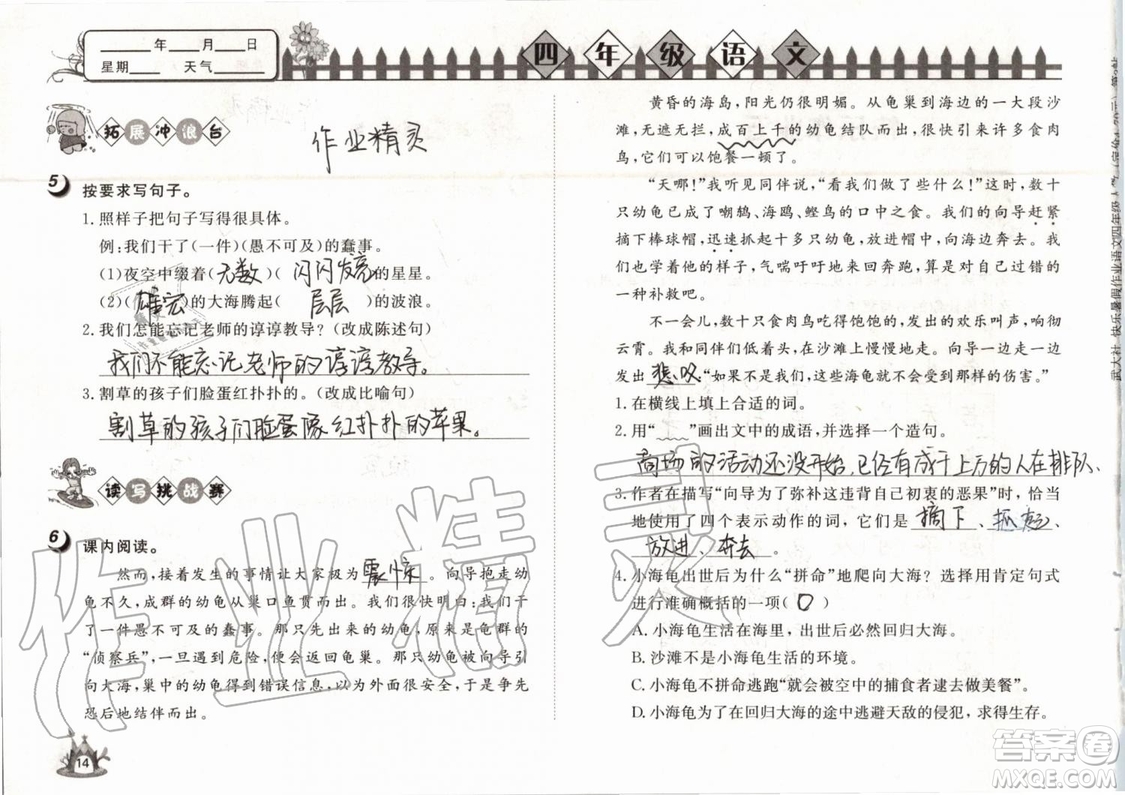 ____年____月____日
星期____ 天气____
四年级语文
拓展冲浪台
作业精灵
5 按要求写句子。
1. 照样子把句子写得很具体。
例:我们干了(一件)(愚不可及)的蠢事。
(1)夜空中缀着(无数)(闪闪发亮)的星星。
(2)(雄宏)的大海腾起(层层)的波浪。
2. 我们怎能忘记老师的谆谆教导?(改成陈述句)
我们不能忘记老师的谆谆教导。
3. 割草的孩子们脸蛋红扑扑的。(改成比喻句)
割草的孩子们脸蛋像红扑扑的苹果。
读写挑战赛
6 课内阅读。
然而,接着发生的事情让大家极为震惊。向导抱走幼
龟不久,成群的幼龟从巢口鱼贯而出。我们很快明白:我们干
了一件愚不可及的蠢事。那只先出来的幼龟,原来是龟群的
“侦察兵”,一旦遇到危险,便会返回龟巢。那只幼龟被向导引
向大海,巢中的幼龟得到错误信息,以为外面很安全,于是争先
恐后地结伴而出。
14
黄昏的海岛,阳光仍很明媚。从龟巢到海边的一大段沙
滩,无遮无拦,成百上千的幼龟结队而出,很快引来许多食肉
鸟,它们可以饱餐一顿了。
“天哪!”我听见同伴说,“看我们做了些什么!”这时,数十
只幼龟已成了嘲鸫、海鸥、鲣鸟的口中之食。我们的向导赶紧
摘下棒球帽,迅速抓起十多只幼龟,放进帽中,向海边奔去。我
们也学着他的样子,气喘吁吁地来回奔跑,算是对自己过错的
一种补救吧。
不一会儿,数十只食肉鸟吃得饱饱的,发出的欢乐叫声,响彻
云霄。我和同伴们低着头,在沙滩上慢慢地走。向导一改往常的冷淡,
发出悲叹:“如果不是我们,这些海龟就不会受到那样的伤害。”
1. 在横线上填上合适的词。
2. 用“﹏﹏”画出文中的成语,并选择一个造句。
商场的活动还没开始,已经有成千上万的人在排队、
3. 作者在描写“向导为了弥补这违背自己初衷的恶果”时,恰当
地使用了四个表示动作的词,它们是摘下、抓起、
放进、奔去。
4. 小海龟出世后为什么“拼命”地爬向大海?选择用肯定句式
进行准确概括的一项( D )
A. 小海龟生活在海里,出世后必然回归大海。
B. 沙滩不是小海龟生活的环境。
C. 小海龟不拼命逃跑“就会被空中的捕食者做美餐”。
D. 小海龟为了在回归大海的途中逃避天敌的侵犯,求得生存。
作业精灵
答案圈
MXQE.COM